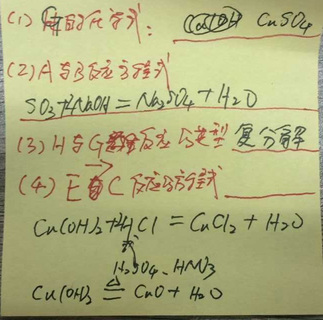 (1) 的化学式: CuSO4
(2) A与B反应方程式
SO3+2NaOH=Na2SO4+H2O
(3) H与G反应的类型 复分解
(4) E→C反应的方程式
Cu(OH)2+HCl=CuCl2+H2O
H2SO4、HNO3
Cu(OH)2 △= CuO+H2O